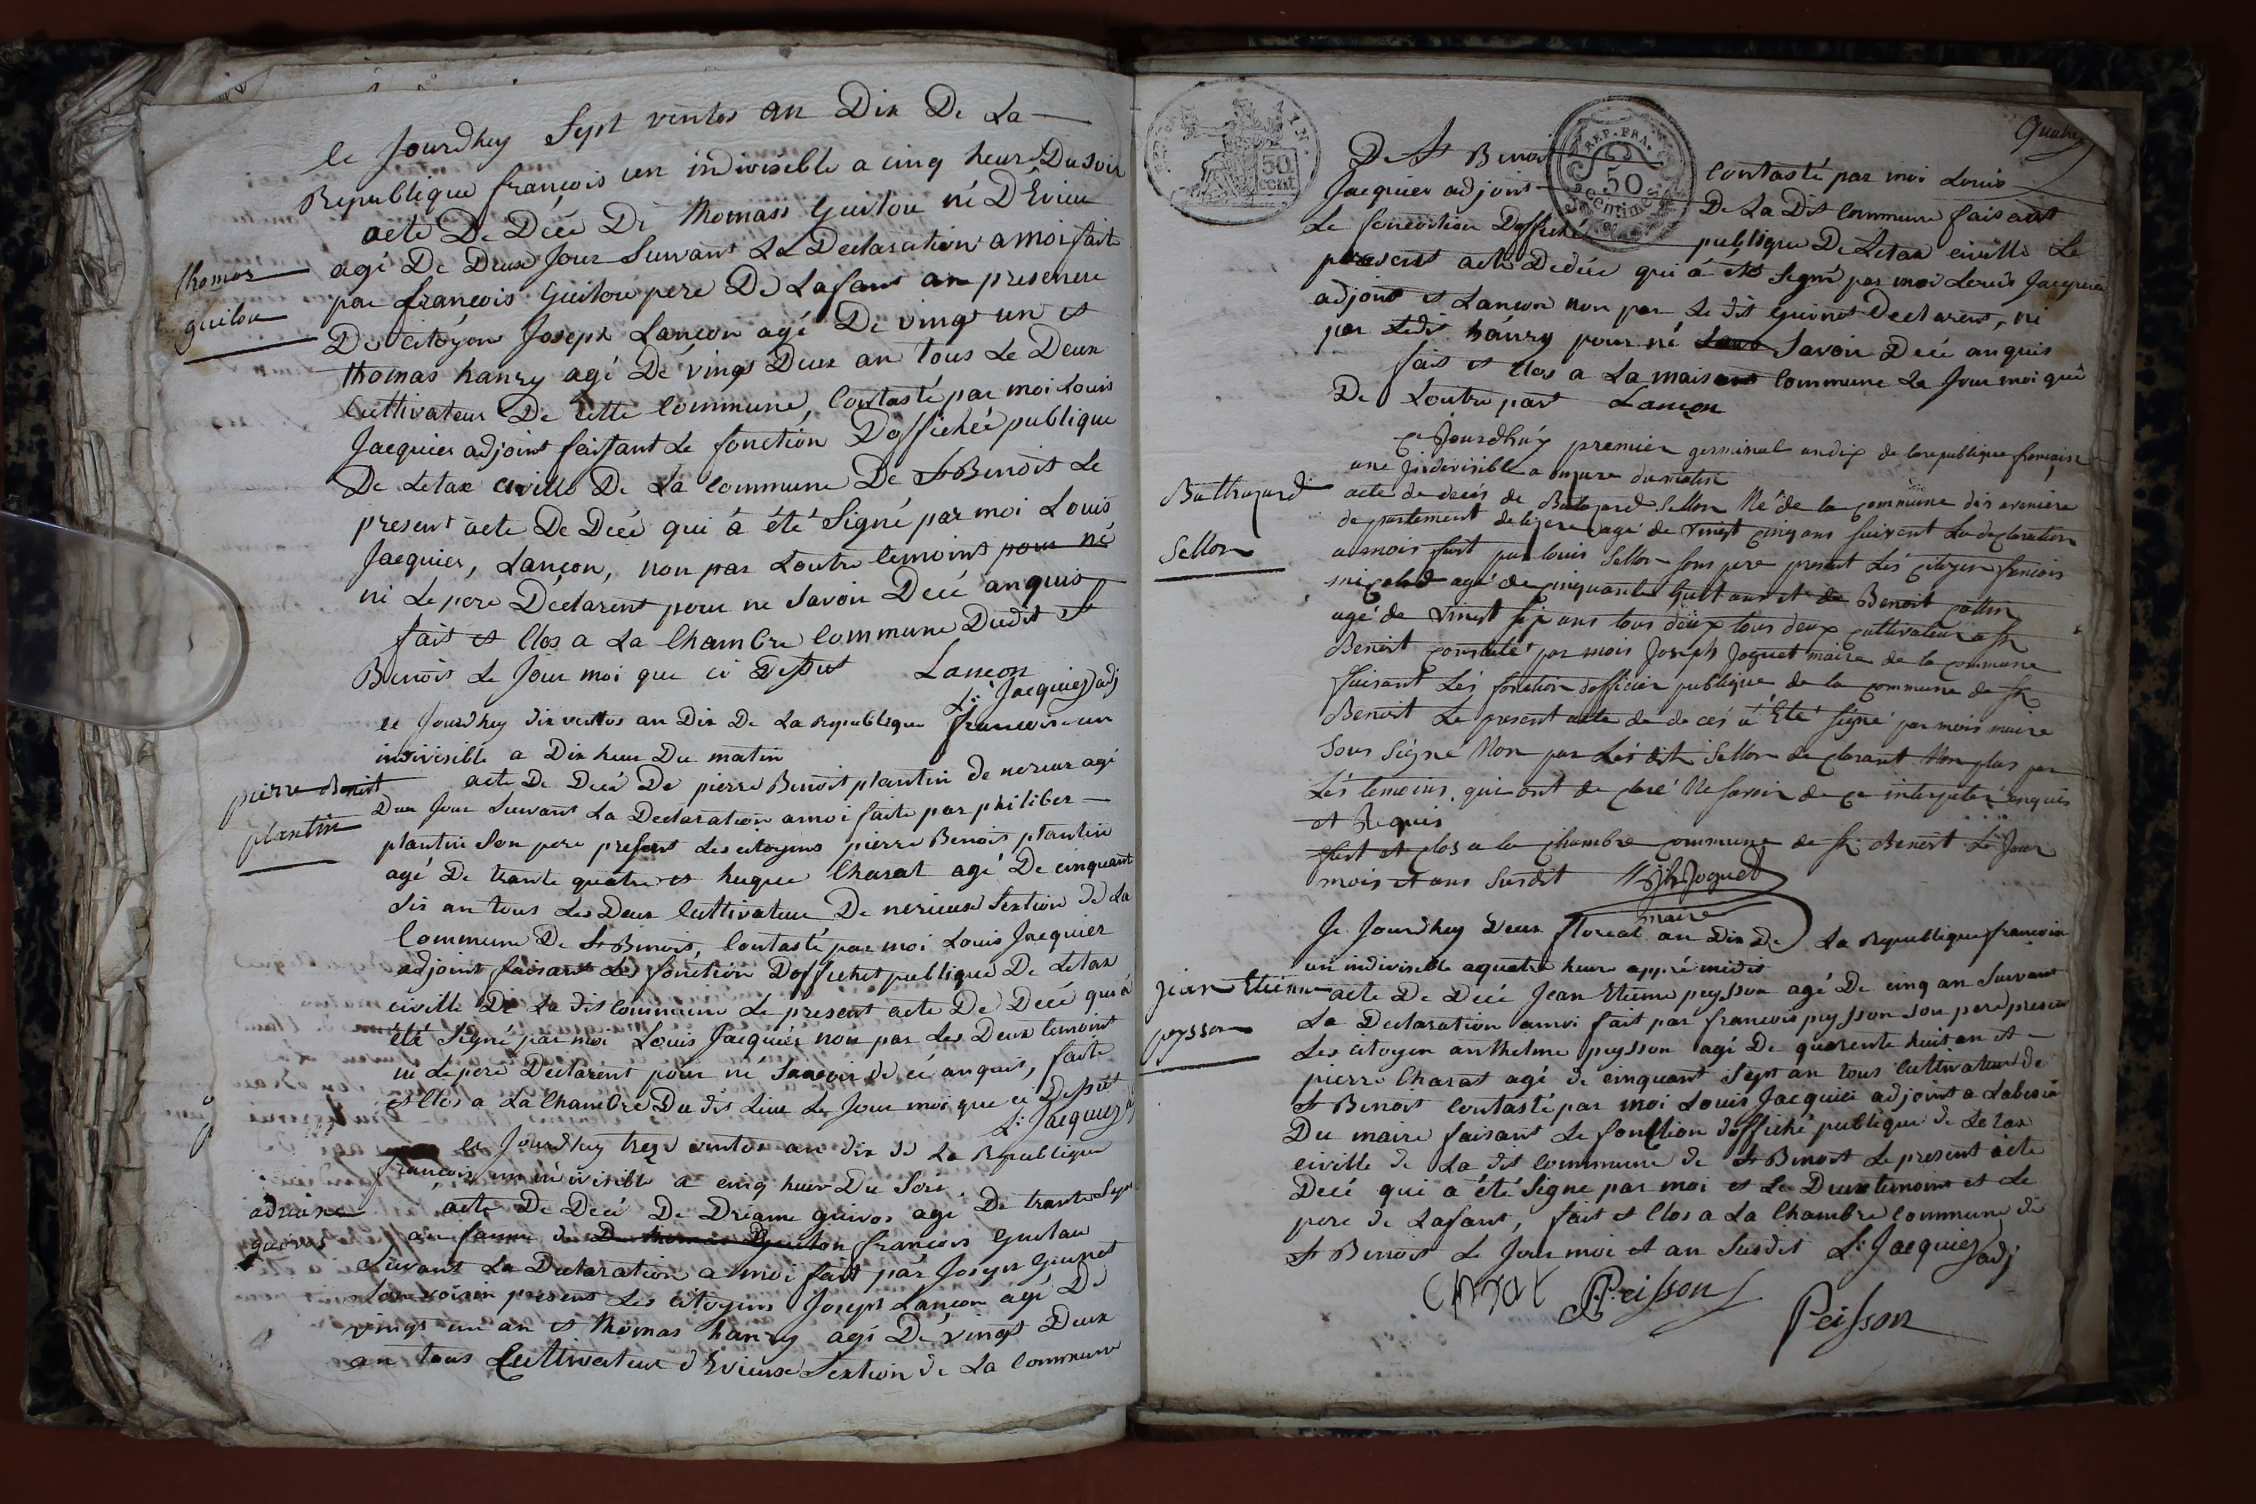 le Jourdhuy Sept ventos an Dix De La
Republique françois un indivisible a cinq heur Du soir
acte De Décé De Thomass Guilou né D'Evieu
thomas
guilou
agé De Deux Jour Suivant La Declaration a moi fait
par françois Guilou pere De Lafant an presence
De citóyen Joseph Lançon agé De vingt un et
thomas hanry agé De vingt Deux an tous Le Deux
Cultivateur De cette Commune, Contasté par moi Louis
Jacquier adjoint faissant Le fonction Dofficheé publique
De Letax civille De La Commune De St Benoit Le
present acte De Décé qui à été Signé par moi Louis
Jacquier, Lançon, non par Loutre temoins pour né
ni Le pere Declarent pour ne Savoir Decé anquis
fait et Clos a La Chambre Commune Dudit St
Benoit Le Jour moi que ci Dessut Lancon
Ls Jacquier adj
le Jourdhuy dix ventos an Dix De La Republique francois un
indivisible a Dix heur Du matin
pierre Benoit
plantin
acte De Decé De pierre Benoit plantin de nerieux agé
Dun Jour Suivant La Declaration a moi faite par philiber
plantin Son pere present Les citoyens pierre Benoit plantin
agé De trante quatre et hugue Charat agé De cinquant
Six an tous Les Deux Cultivateur De nerieux Sextion de La
Commune De St Binoit, Contasté par moi Louis Jacquier
adjoint faisant Les fonction Doffichet publique De Letax
civille De La dit Commune Le present acte De Décé qui à
été Signé par moi Louis Jacquier non par Les Deux temoint
ni Le pere Declarent pour né Savoir de cé anquis, faite
et Clos a La Chambre Du dit Lieu Le Jour moi que ci Dessut
Ls Jacquier
le Jourdhuy treze ventos an dix de La Republique
francois un indivisible a cinq heur Du Soir
adriane
guivos
acte De Decé De Driane guivos agé De trante Sept
an famme de De thomas Guilou francois Guilau
Suivant La Declaration a moi fait par Joseph Guinet
Son voisin present Les citoyens Joseph Lançon agé De
vingt un an et thomas hanry agé De vingt Deux
an tous Cultivateur d'Evieux Sextion de La Commune
Quatre
50 CENT.
REP. FRA.
50
centimes
De St Benoit Contasté par moi Louis
Jacquier adjoint De La Dit Commune faisant
Le foncontion Doffiché publique De Letax civille Le
present acte Dedéce qui à été Signé par moi Louis Jacquier
adjoint et Lançon non par Le dit Guinet Declarent, ni
par Ledit hanry pour né Savoir Décé anquis
fait et Clos a La maison Commune Le Jour moi qué
De Loutre part Lançon
Ce Jourdhuy premier germinal andix de la republique française
une Jndivisible a onzure du matin
Balthazard
Sellon
acte de decés de Baltazard Sellon Né de la commune des avenière
departement delizere agé de vinet cinq ans suivent La declaration
a mois fait par louis Sellon sons pere present Lés citoyen fencois
agé de cinquante huit ans et de Benoit
agé de vinet six ans tous deux tous deux cultivateur a St
Benoit constaté par mois Joseph Joguet maire de la commune
faisant Lés fonction dofficier publique de la commune de St
Benoit Le present acte de de cés à Eté signé par mois maire
Sous Signé Non par Lés dit Sellon declarant Non plus par
Lés temoins qui ont de claré Ne savoir de ce interpeter enquis
et Requis
fait et clos a la chambre commune de St Benoit Le Jour
mois et ans Susdit Jh Joguet
maire
Je Jourdhuy Deux floreal an Dix De La Republique francoise
un indivisible aquatre heure appré midis
jean Etienne
peysson
acte De Decé Jean Etienne peysson agé De cinq an Suivant
La Declaration amoi fait par francois peysson son pere present
Les citoyen anthelme peysson agé De quarente huit an et
pierre Charat agé de cinquant Sept an tous Cultivateur de
St Benoit Contasté par moi Louis Jacquier adjoint a Labesin
Du maire faisant Le fonction doffiché publique de Letax
civille de La dit Commmune de St Benoit Le present acte
Decé qui a été Signe par moi et Le Deux temoint et Le
pere de Lafant, fait et Clos a La Chambre Commune de
St Benoit Le Jour moi et an Susdit Ls Jacquier adj
Charat Peisson
Peisson